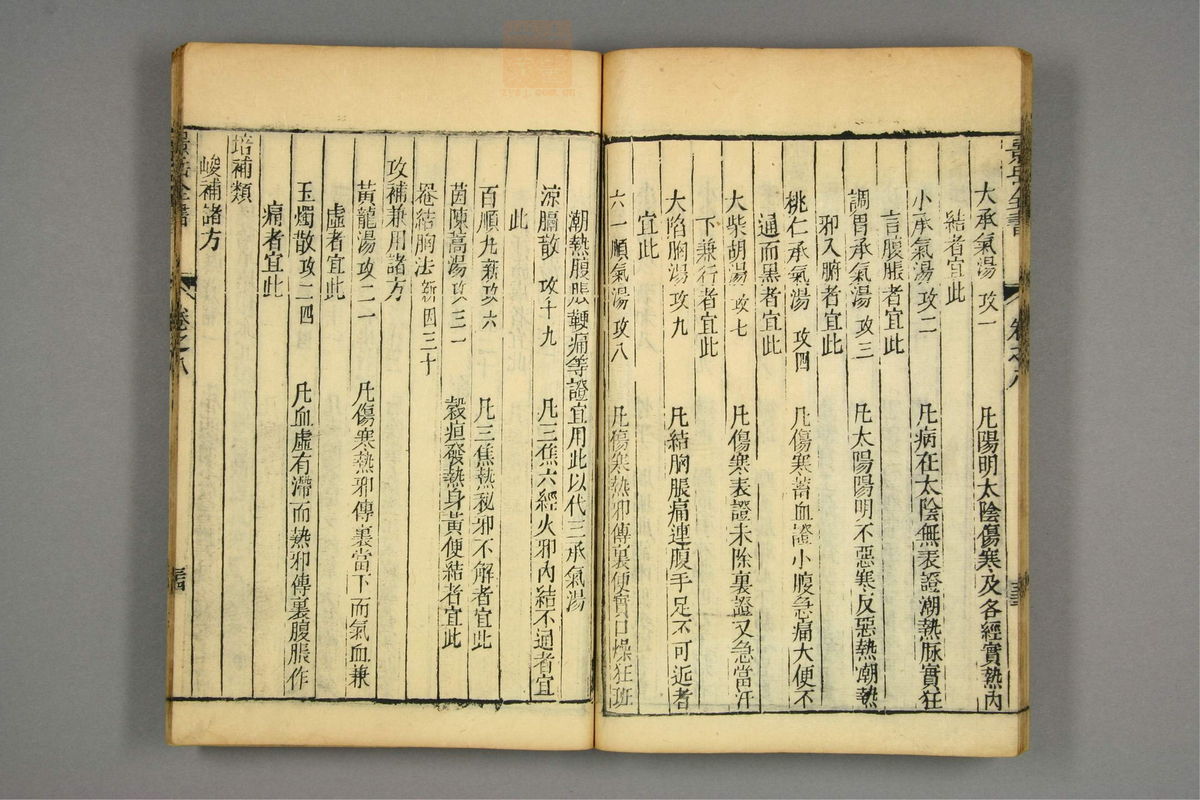 大承氣湯 攻一 凡陽明太陰傷寒及各經實熱內
結者宜此
小承氣湯 攻二 凡病在太陰無表證潮熱脉實狂
言腹脹者宜此
調胃承氣湯 攻三 凡太陽陽明不惡寒反惡熱潮熱
邪入腑者宜此
桃仁承氣湯 攻四 凡傷寒蓄血證小腹急痛大便不
通而黑者宜此
大柴胡湯 攻七 凡傷寒表證未除裏證又急當汗
下兼行者宜此
大陷胸湯 攻九 凡結胸脹痛連腹手足不可近者
宜此
六一順氣湯 攻八 凡傷寒熱邪傳裏便實口燥狂班
潮熱腹脹鞕痛等證宜用此以代三承氣湯
涼膈散 攻十九 凡三焦六經火邪內結不通者宜
此
百順丸 新攻六 凡三焦熱秘邪不解者宜此
茵陳蒿湯 攻三一 穀疸發熱身黃便結者宜此
罨結胸法 新四三十
攻補兼用諸方
黃龍湯 攻二一 凡傷寒熱邪傳裏當下而氣血兼
虛者宜此
玉燭散 攻二四 凡血虛有滯而熱邪傳裏腹脹作
痛者宜此
培補類
峻補諸方
景岳全書 卷之八